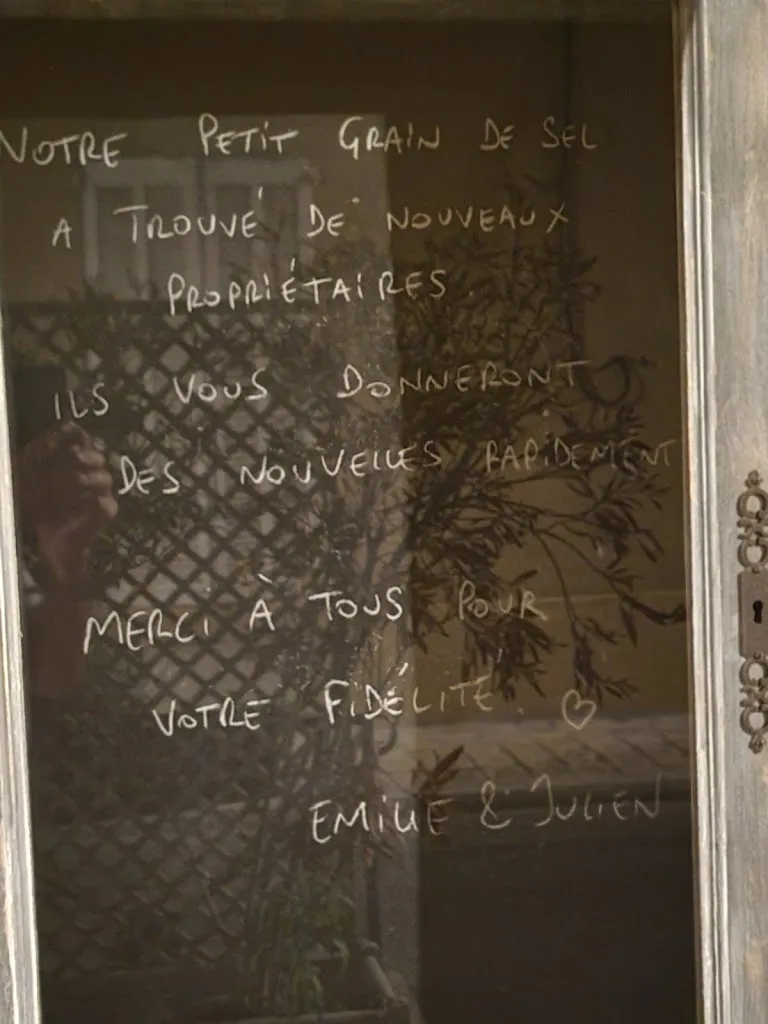 NOTRE PETIT GRAIN DE SEL
A TROUVÉ DE NOUVEAUX
PROPRIÉTAIRES.
ILS VOUS DONNERONT
DES NOUVELLES RAPIDEMENT
MERCI À TOUS POUR
VOTRE FIDÉLITÉ. ♡
EMILIE & JULIEN